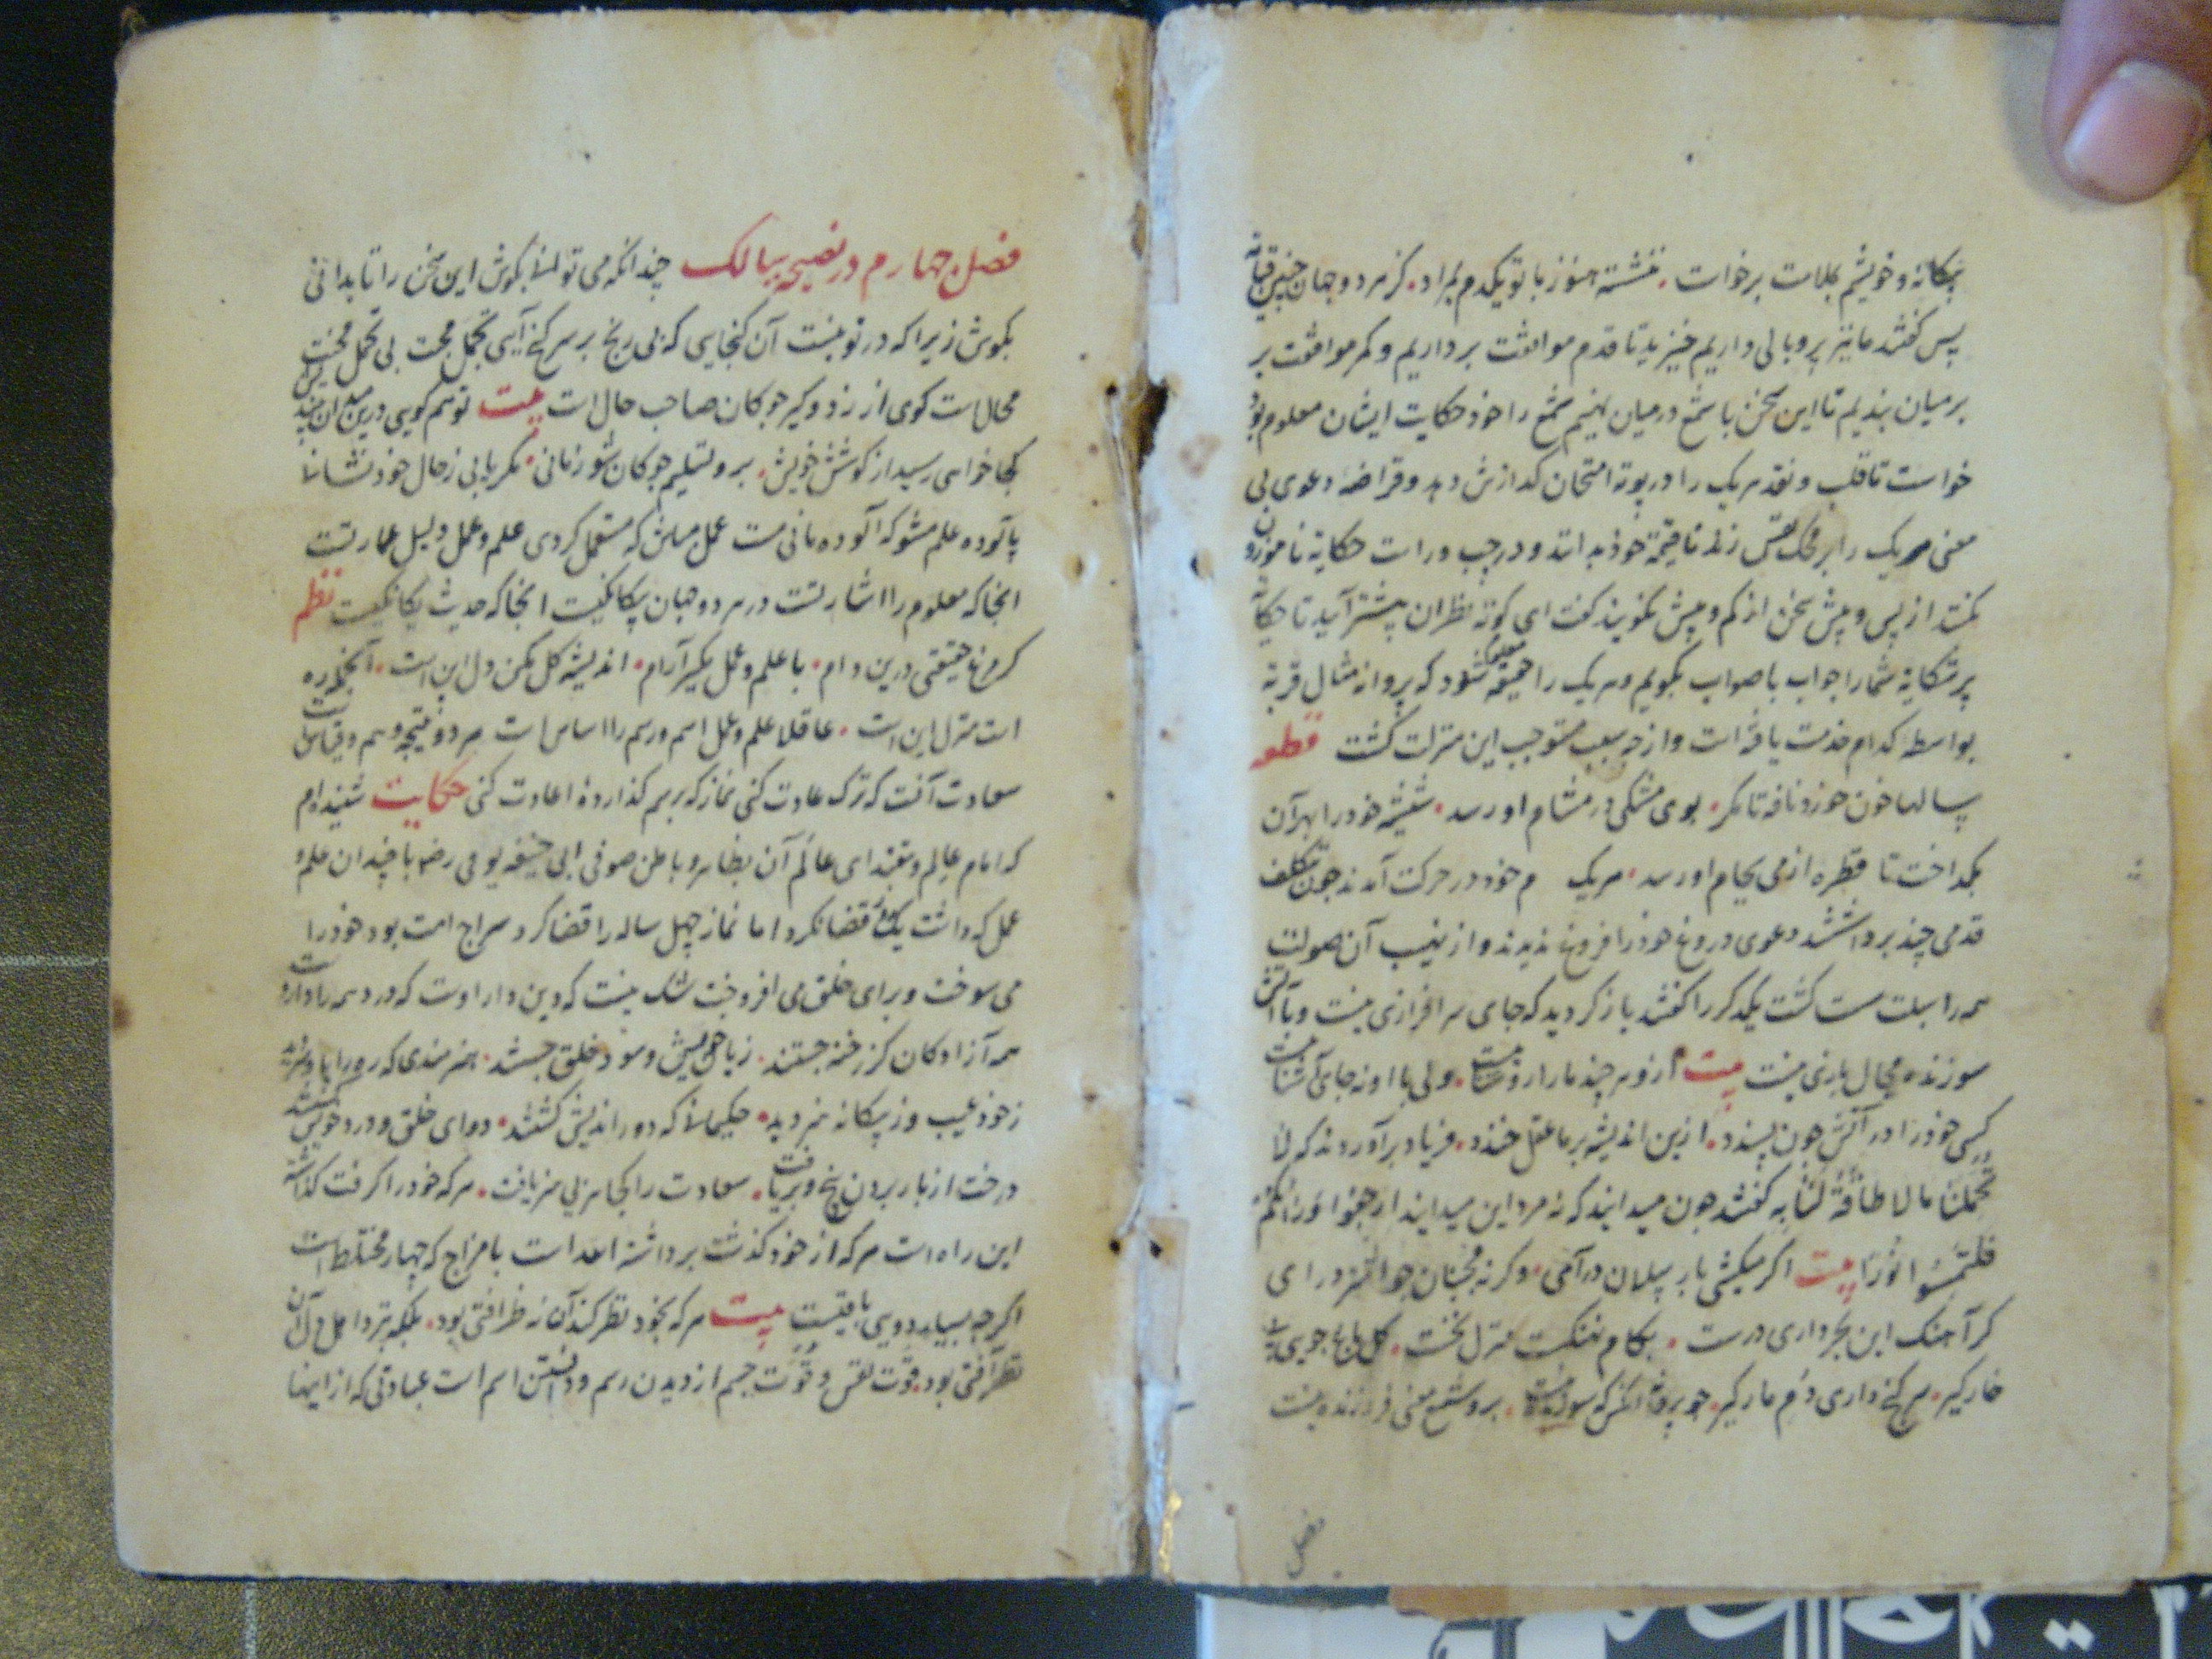 بیکانه و خویشم بملامت برخاست نشسته هنوز با تو یکدم بمراد کز هر دو جهان چنین
پس گفتند ما نیز پر و بالی داریم خیزید تا قدم موافقت برداریم و کمر موافقت بر
بر میان بندیم تا این سخن با شمع در میان نهیم شمع را خود حکایت ایشان معلوم بود
خواست تا قلب و نقد هر یک را در بوته امتحان کدازش دهد و قراضه دعوی بی
معنی هر یک را بر محک نقس زند تا قیمت خود بدانند و در چپ و راست حکایه ناموزون
نکنند از پس و پیش سخن از کم و بیش نکویند کفت ای کوته نظران پیشتر آیید تا
بر شکایة شما را جواب با صواب بکویم و هر یک را حقیقة معلوم شود که پروانه مثال قربة
بواسطه کدام خدمت یافه است و از چه سبب مستوجب این منزلت کشت قطعه
سالها خون خورد نافه تا مکر بوی مشکی در مشام او رسد شیشه خود را بهر آن
بکداخت تا قطره از می بجام او رسد هر یک م خود در حرکت آمدند چون بتکلف
قدمی چند برداشتند دعوی دروغ خود را فروغ ندیدند و از نهیب آن صولت
همه را سبلت سست کشت یکدکر را کفتند باز کردید که جای سرافرازی نیست و با آتش
سوزنده مجال بازی نیست بیت ارزو هر چند ما را رو نماست ولی با او نه جای آشناست
کسی خود را در آتش چون پسندد ازین اندیشه بر ما عقل خندد فریاد برآوردند که لا
تحملنا ما لا طاقة لنا به کفتند چون میدانید که نه مرد این میدانید ارجعوا وراءکم
فالتمسوا نورا بیت اکر میکشی بار پیلان درآی وکرنه مجنبان چو اشتر درای
کر آهنک این بحر داری درست بکام نهنکت منزل نخست کل باغ جویی
خار کیر سر کنج داری دم مار کیر چو پروانه انکس که سوزنده نیست برو شمع معنی فروزنده نیست
فصل
فصل چهارم در نصیحه سالک چندانکه می توانی بکوش این سخن را تا بدانی
بکوش زیرا که در تو نیست آن کنجایی که بی رنج بر سر کنج آیی تجمل محبت بی تحمل محنت
محالست کوی از رزو کیر چوکان صاحب حال است بیت تو هم کویی درین میدان
کجا خواهی رسید از کوشش خویش برو تسلیم چوکان شو زمانی مکر یابی ز حال خود نشانی
پا آلوده علم مشو که آلوده مانی مست عمل مباش که مستعمل کردی علم و عمل دلیل عمارتست
انجا که معلوم را اشارتست در هر دو جهان بیکانکیست انجا که حدیث یکانکیست نظم
کر مرغ حقیقتی درین دام با علم و عمل مکیر آرام اندیشه کل مکن دل این است آنجمله ره
است منزل این است عاقلا علم و عمل اسم و رسم را اساس است هر دو نتیجه وهم و قیاس
سعادت آنست که ترک عادت کنی نماز که برسم کذاردهٔ اعادت کنی حکایت شنیده ام
که امام عالم و مقتدای عالم آن بظاهر و باطن صوفی ابی حنیفه کوفی رضه با چندان علم و
عمل که داشت یک قضا نکرد اما نماز چهل ساله را قضا کرد سراج امت بود خود را
می سوخت و برای خلق می افروخت شک نیست که دین دار اوست که درد همه را دارد
همه آزادکان کز رخنه جستند زیان خویش و سود خلق جستند هنرمندی که ره را پا و سر دید
ز خود عیب و ز بیکانه هنر دید حکیمانی که دوراندیش کشتند دوای خلق و درد خویش کشتند
درخت از بار بردن بیخ و بر یافت سعادت را کجا هر بی هنر یافت هر که خود را کرفت کذاشته
این راه است هر که از خود کذشت برداشته اعداست با مزاج که چهار مختلط است
اکرچه بسیاید دویی باقیست بیت هر که بخود نظر کند آن نه ظرافتی بود بلکه بتر دامل و آن
نظر آفتی بود قوت نفس و قوت جسم از دیدن رسم و دانستن اسم است عبادتی که از اینها